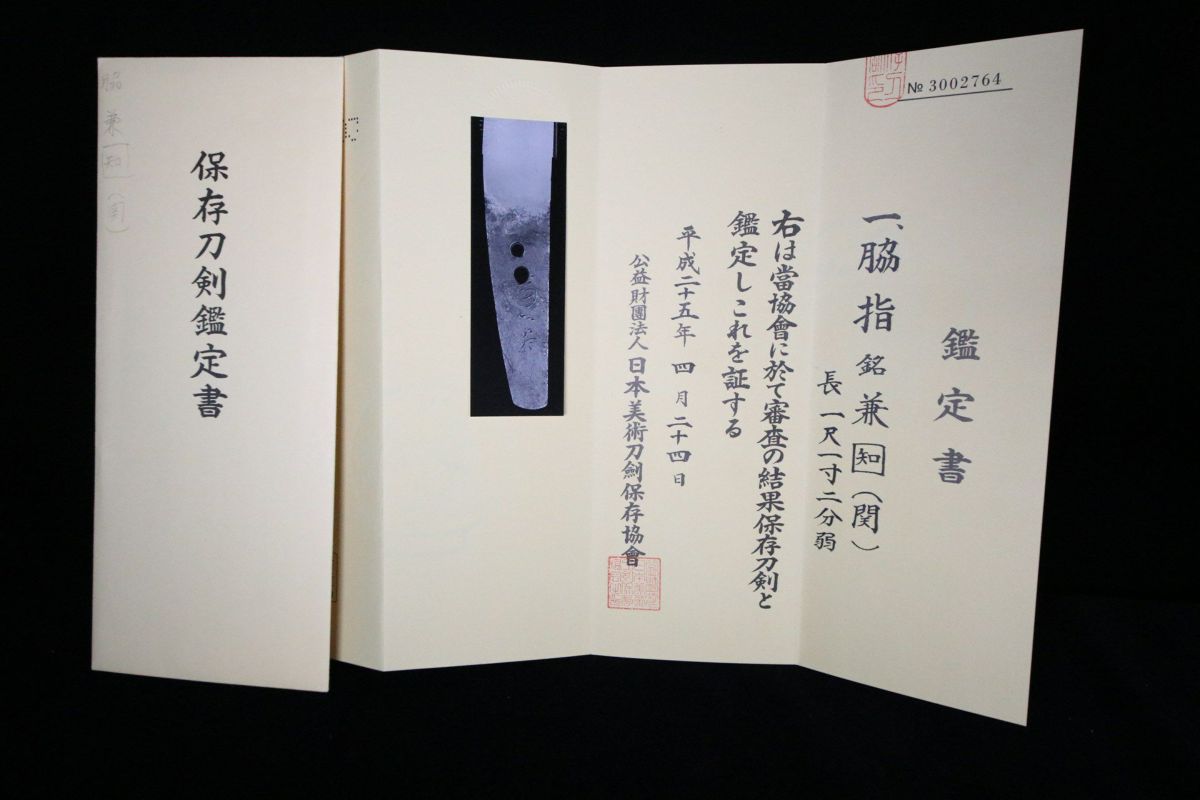 № 3002764
鑑定書
一、脇指 銘 兼知(関)
長 一尺一寸二分弱
右は當協會に於て審査の結果保存刀剣と
鑑定しこれを証する
平成二十五年 四月二十四日
公益財團法人 日本美術刀劍保存協會
保存刀剣鑑定書
脇 兼知(関)